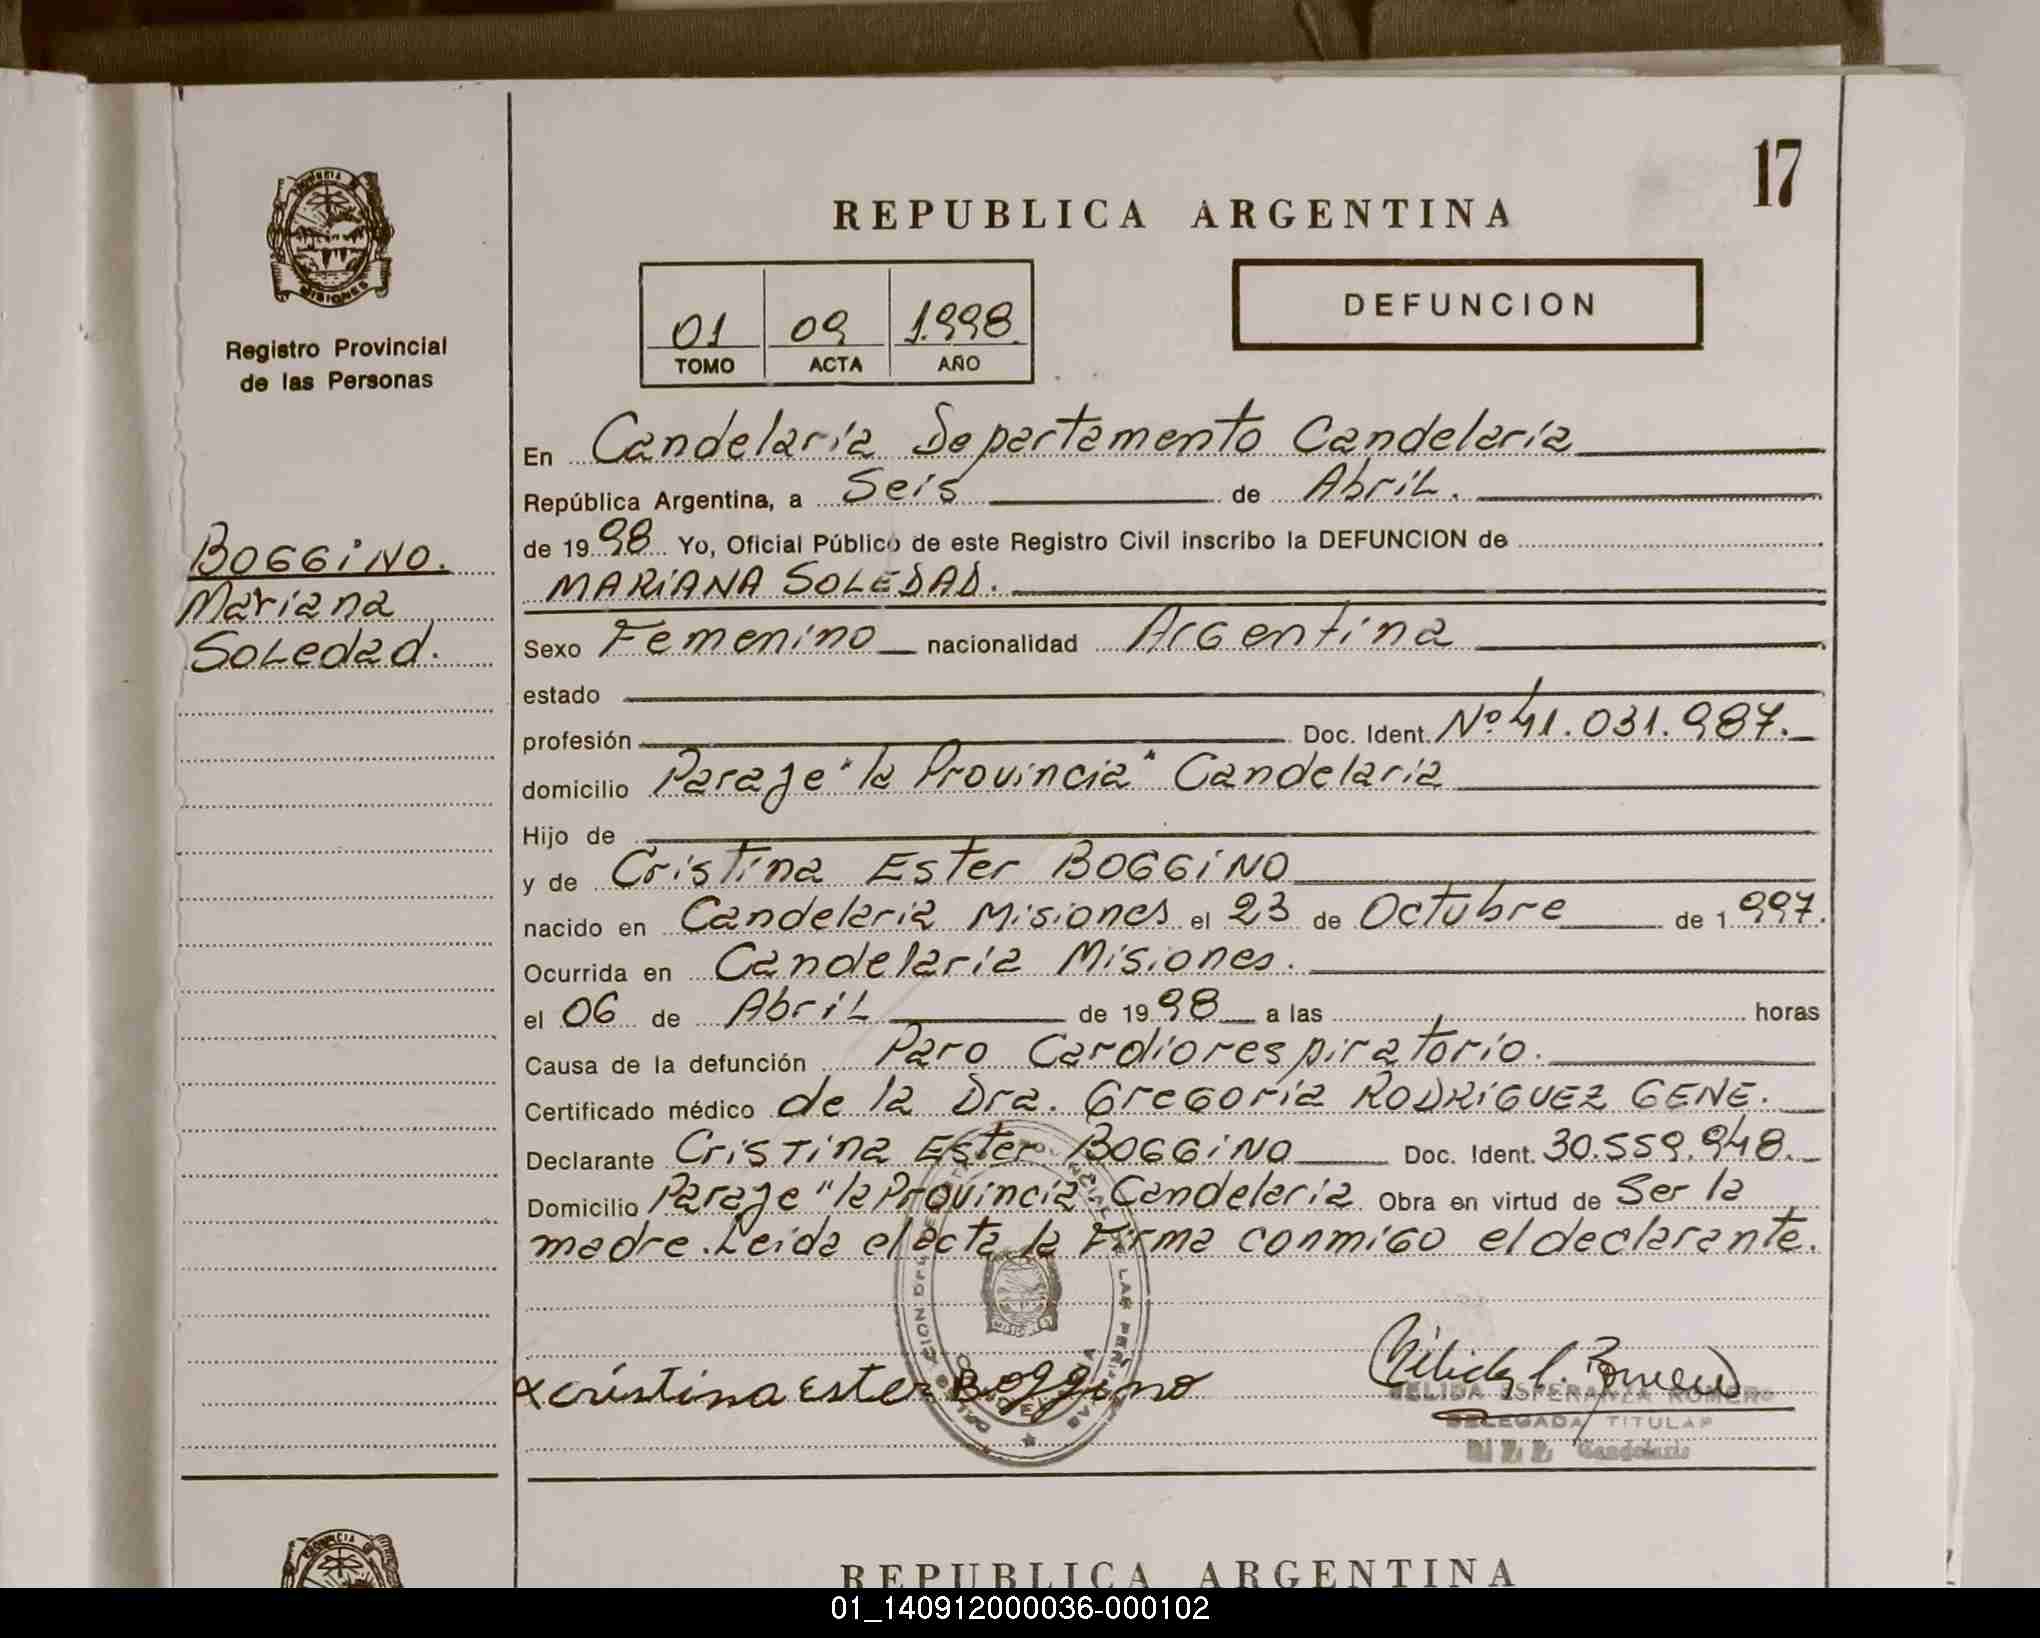 17
REPUBLICA ARGENTINA
DEFUNCION
01 09 1.998
TOMO ACTA AÑO
PROVINCIA DE
MISIONES
Registro Provincial
de las Personas
BOGGiNO.
Mariana
Soledad.
En Candelaria Departamento Candelaria
República Argentina, a Seis de Abril.
de 19 98 Yo, Oficial Público de este Registro Civil inscribo la DEFUNCION de
MARiANA SOLEDAD.
Sexo Femenino nacionalidad Argentina
estado
profesión Doc. Ident. Nº 41.031.987.
domicilio Paraje "la Provincia" Candelaria
Hijo de
y de Cristina Ester BOGGiNO
nacido en Candelaria Misiones el 23 de Octubre de 1 997.
Ocurrida en Candelaria Misiones.
el 06 de Abril de 19 98 a las horas
Causa de la defunción Paro Cardiorespiratorio.
Certificado médico de la Dra. Gregoria RODRiGUEZ GENE.
Declarante Cristina Ester BOGGiNO Doc. Ident. 30.559.948.
Domicilio Paraje "la Provincia Candelaria Obra en virtud de Ser la
madre. Leida el acta la Firma conmigo el declarante.
x cristina ester Boggino
NELIDA ESPERANZA ROMERO
DELEGADA TITULAR
Candelaria
REPUBLICA ARGENTINA
01_140912000036-000102